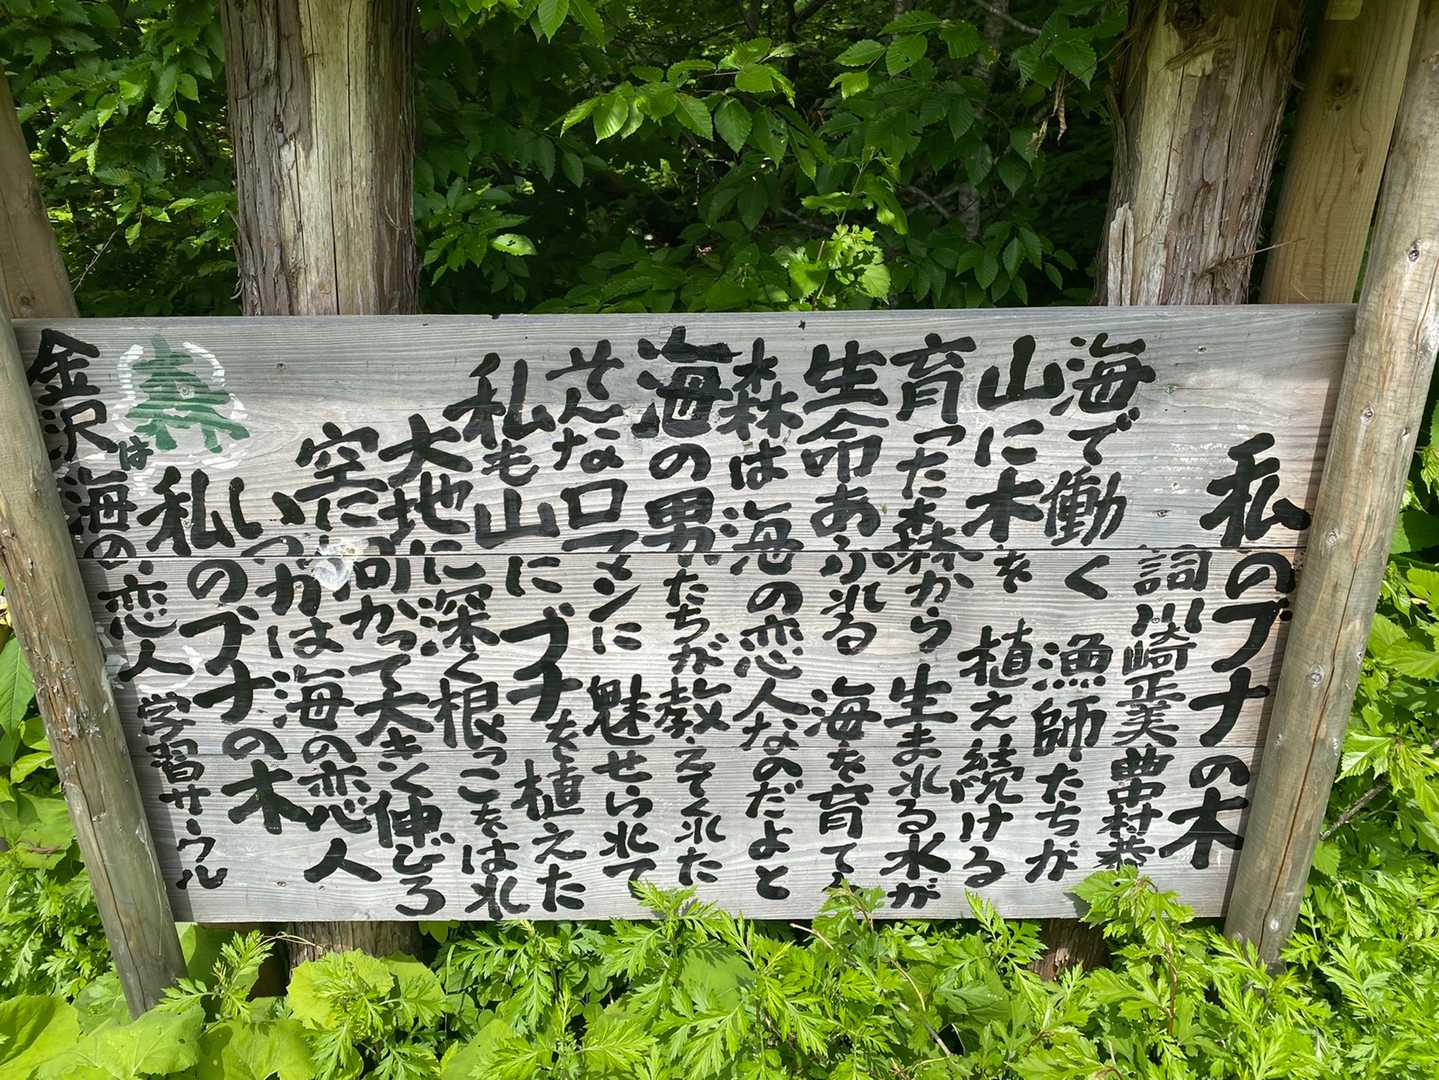 私のブナの木
詞 川崎正美 曲 中村恭
海で働く 漁師たちが
山に木を 植え続ける
育った森から 生まれる水が
生命あふれる 海を育てる
森は海の恋人なのだよと
海の男たちが教えてくれた
そんなロマンに 魅せられて
私も山にブナを植えた
大地に深く根っこをはれ
空に向かって大きく伸びろ
いつかは海の恋人
私のブナの木
金沢 森は海の恋人 学習サークル